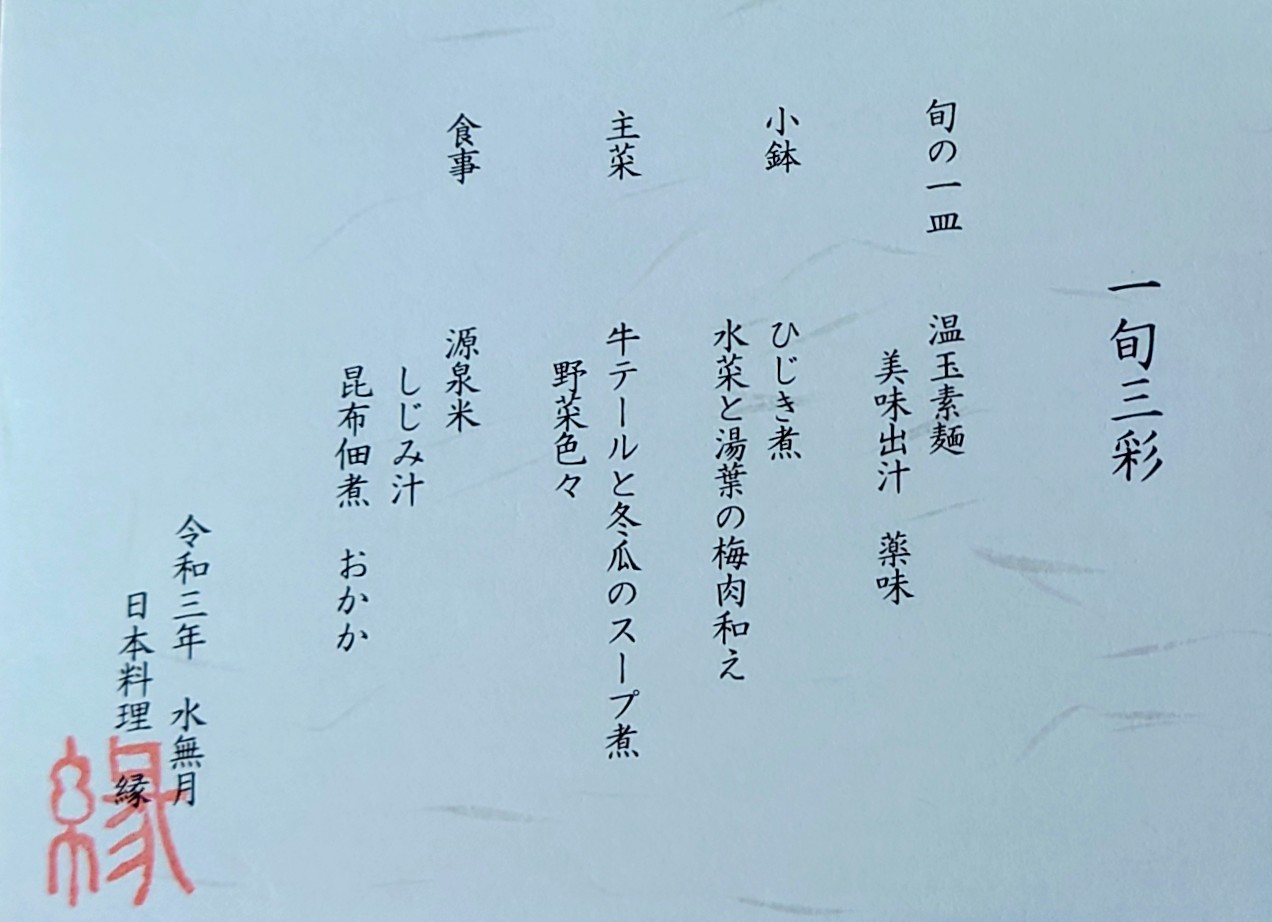 一旬三彩
旬の一皿　温玉素麺
美味出汁　薬味
小鉢　ひじき煮
水菜と湯葉の梅肉和え
主菜　牛テールと冬瓜のスープ煮
野菜色々
食事　源泉米
しじみ汁
昆布佃煮　おかか
令和三年　水無月
日本料理　縁
縁